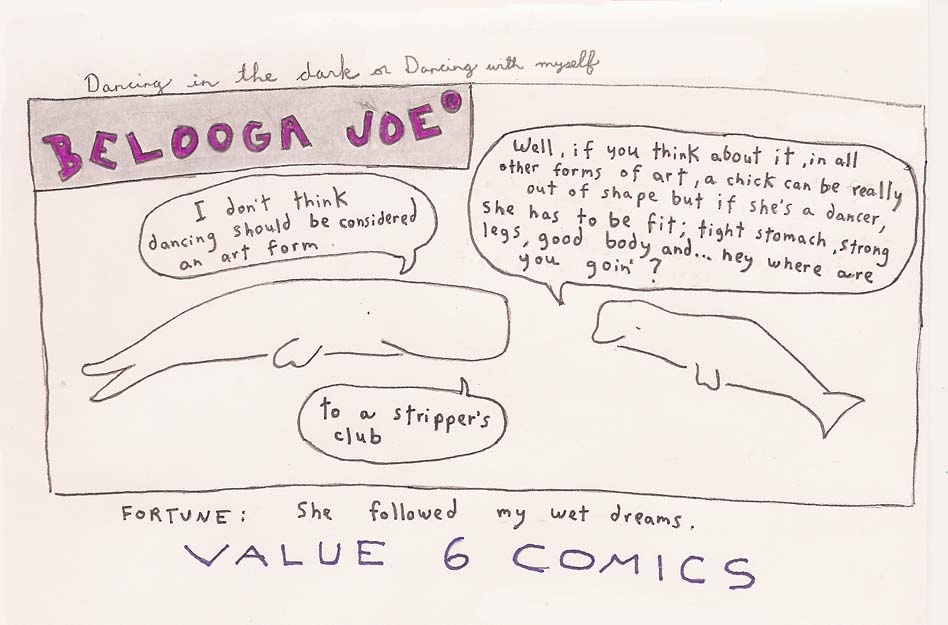 Dancing in the dark or Dancing with myself
BELOOGA JOE®
I don't think
dancing should be considered
an art form.
Well, if you think about it, in all
other forms of art, a chick can be really
out of shape but if she's a dancer,
she has to be fit; tight stomach, strong
legs, good body and... hey where are
you goin'?
to a stripper's
club
FORTUNE: She followed my wet dreams.
VALUE 6 COMICS